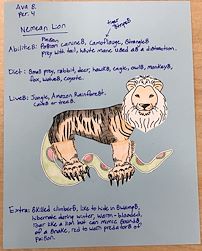 Ava B.
Per. 4
Nemean Lion
tiger
stripes
Poison
Abilities: Poison canines, camouflage, strangle
prey with tail, white mane used as a distraction.
Diet: Small prey, rabbit, deer, hawks, eagle, owl, monkeys,
fox, wolves, coyote.
Lives: Jungle, Amazon Rainforest.
Caves or trees.
Extra: Skilled climbers, like to hide in swamps,
hibernate during winter, warm-blooded,
roar like a lion but can mimic sounds
of a snake, red to warn predators of
poison.